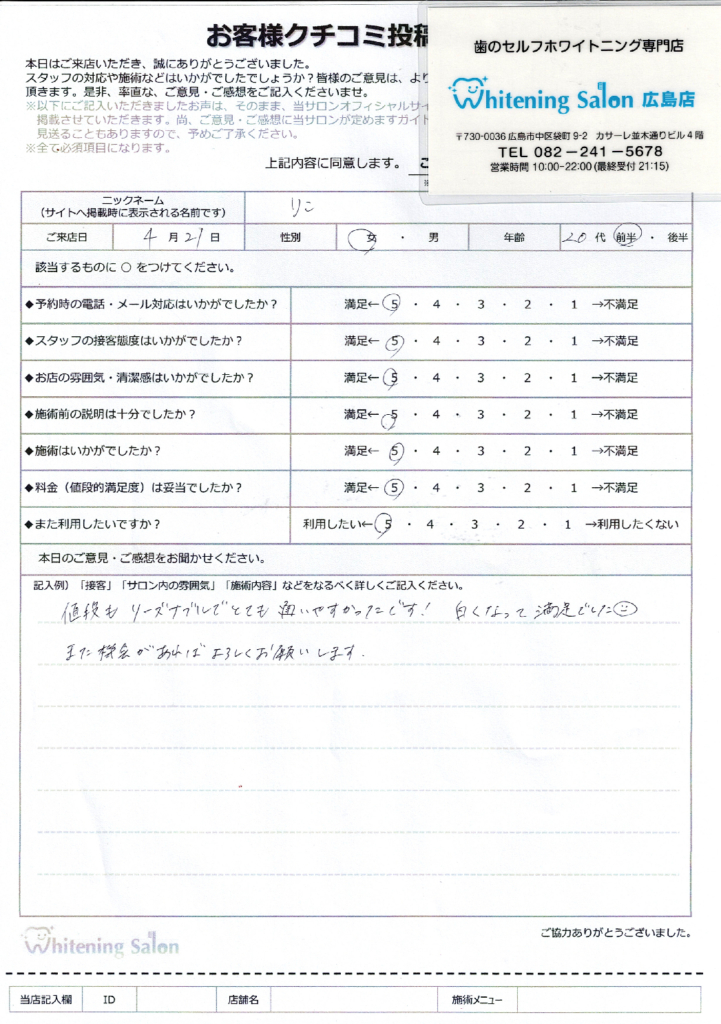 お客様クチコミ投稿
本日はご来店いただき、誠にありがとうございました。
スタッフの対応や施術などはいかがでしたでしょうか?皆様のご意見は、より
頂きます。是非、率直な、ご意見・ご感想をご記入くださいませ。
※以下にご記入いただきましたお声は、そのまま、当サロンオフィシャルサイ
掲載させていただきます。尚、ご意見・ご感想に当サロンが定めますガイド
見送ることもありますので、予めご了承ください。
※全て必須項目になります。
上記内容に同意します。
歯のセルフホワイトニング専門店
Whitening Salon 広島店
〒730-0036 広島市中区袋町9-2 カサーレ並木通りビル4階
TEL 082-241-5678
営業時間 10:00-22:00 (最終受付 21:15)
ニックネーム
(サイトへ掲載時に表示される名前です) りこ
ご来店日 4 月 21 日 性別 女 ・ 男 年齢 20 代 前半 ・ 後半
該当するものに ○ をつけてください。
◆予約時の電話・メール対応はいかがでしたか? 満足← 5 ・ 4 ・ 3 ・ 2 ・ 1 →不満足
◆スタッフの接客態度はいかがでしたか? 満足← 5 ・ 4 ・ 3 ・ 2 ・ 1 →不満足
◆お店の雰囲気・清潔感はいかがでしたか? 満足← 5 ・ 4 ・ 3 ・ 2 ・ 1 →不満足
◆施術前の説明は十分でしたか? 満足← 5 ・ 4 ・ 3 ・ 2 ・ 1 →不満足
◆施術はいかがでしたか? 満足← 5 ・ 4 ・ 3 ・ 2 ・ 1 →不満足
◆料金(値段的満足度)は妥当でしたか? 満足← 5 ・ 4 ・ 3 ・ 2 ・ 1 →不満足
◆また利用したいですか? 利用したい← 5 ・ 4 ・ 3 ・ 2 ・ 1 →利用したくない
本日のご意見・ご感想をお聞かせください。
記入例)「接客」「サロン内の雰囲気」「施術内容」などをなるべく詳しくご記入ください。
値段もリーズナブルでとても通いやすかったです! 白くなって満足でした☺
また機会があればよろしくお願いします.
Whitening Salon
ご協力ありがとうございました。
当店記入欄 ID 店舗名 施術メニュー